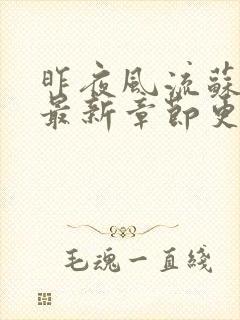 昨夜風流蘇
最新章節更
毛魂一直綫